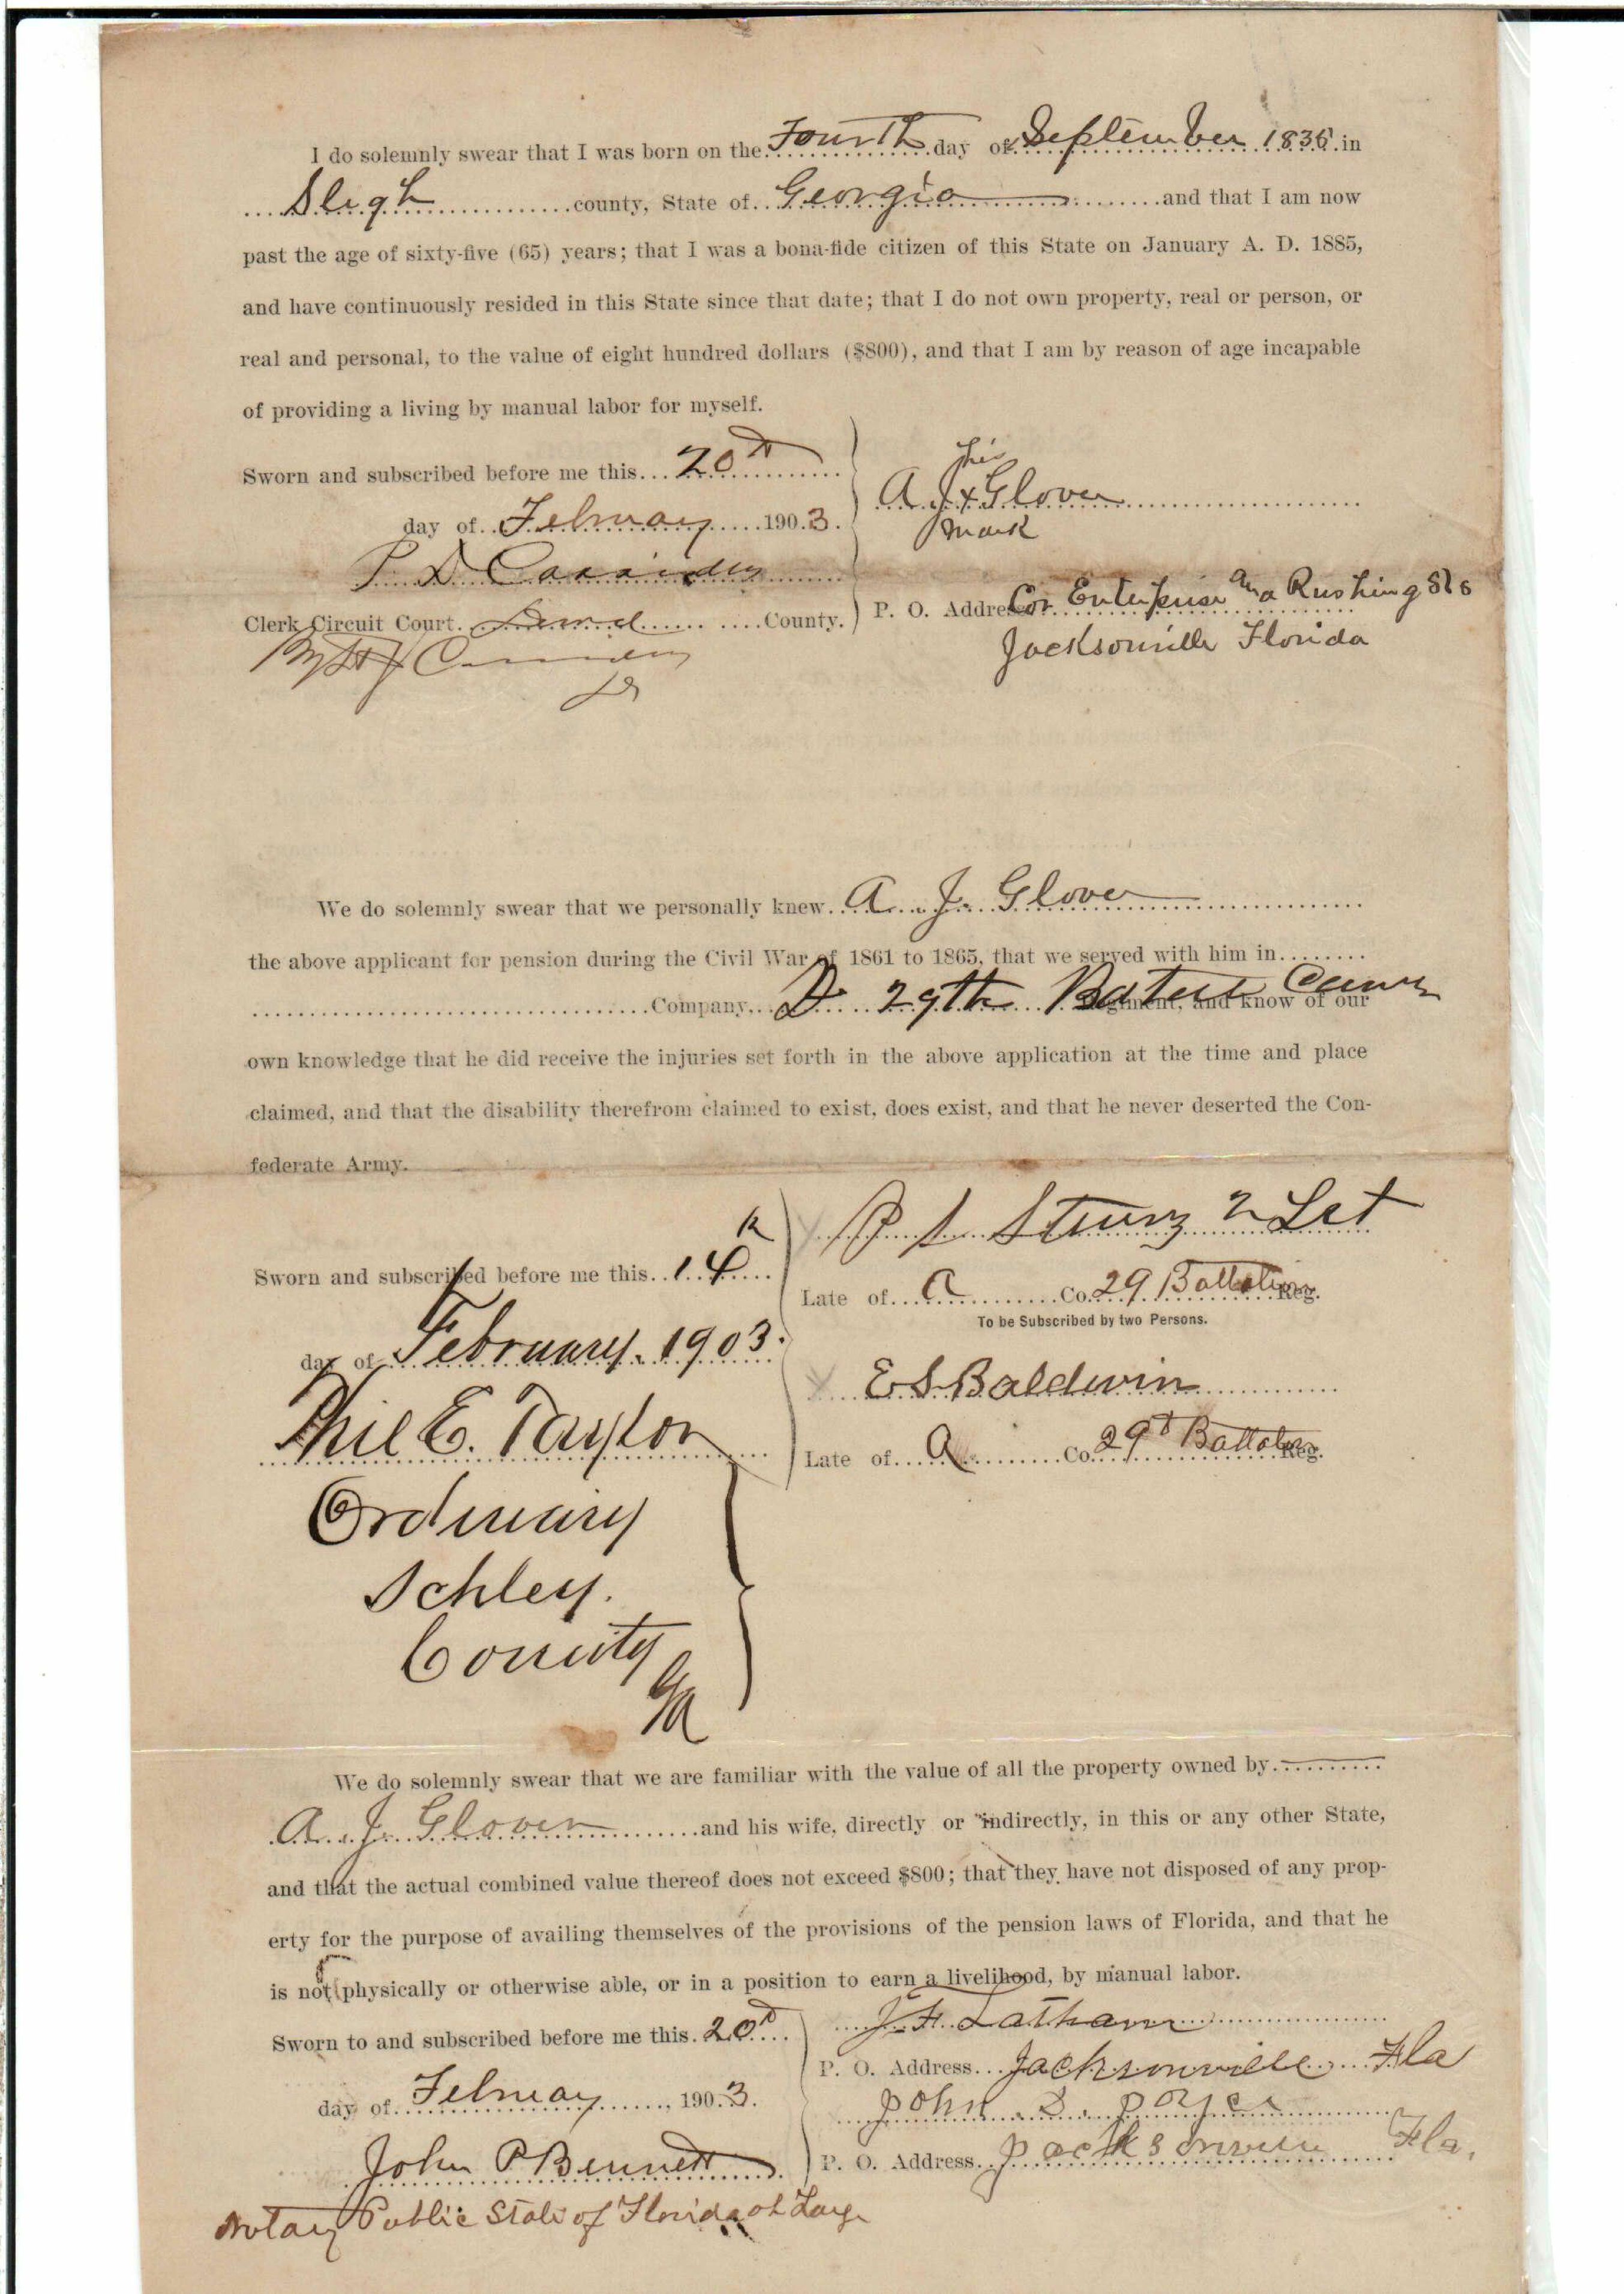 I do solemnly swear that I was born on the Fourth day of September 1836 in
Sligh county, State of Georgia and that I am now
past the age of sixty-five (65) years; that I was a bona-fide citizen of this State on January A. D. 1885,
and have continuously resided in this State since that date; that I do not own property, real or person, or
real and personal, to the value of eight hundred dollars ($800), and that I am by reason of age incapable
of providing a living by manual labor for myself.
his
Sworn and subscribed before me this 20th
A J x Glover
day of February 1903.
mark
P D Cassidey
P. O. Address Cor Enterprise and Rushing Sts
Clerk Circuit Court Duval County.
Jacksonville Florida
By
We do solemnly swear that we personally knew A. J. Glover
the above applicant for pension during the Civil War of 1861 to 1865, that we served with him in
Company, D 29th Batal Regiment, and know of our
own knowledge that he did receive the injuries set forth in the above application at the time and place
claimed, and that the disability therefrom claimed to exist, does exist, and that he never deserted the Con-
federate Army.
2 Let
Sworn and subscribed before me this 14th
Late of A Co. 29 Battalion Reg.
To be Subscribed by two Persons.
day of February. 1903.
E S Baldwin
Phil E. Taylor
Late of A Co. 29th Battalion Reg.
Ordinary
Schley.
County
Ga
We do solemnly swear that we are familiar with the value of all the property owned by
A. J. Glover and his wife, directly or indirectly, in this or any other State,
and that the actual combined value thereof does not exceed $800; that they have not disposed of any prop-
erty for the purpose of availing themselves of the provisions of the pension laws of Florida, and that he
is not physically or otherwise able, or in a position to earn a livelihood, by manual labor.
J. F. Latham
Sworn to and subscribed before me this 20th
P. O. Address Jacksonville Fla
day of February, 1903.
John S.
John P Bennett
P. O. Address Jacksonville Fla.
Notary Public State of Florida at Large